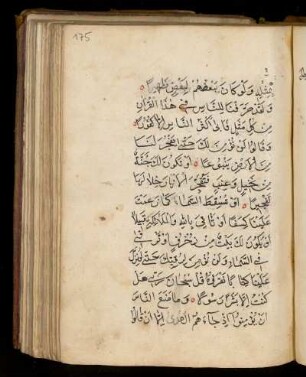 175
بِمِثْلِهِ وَلَوْ كَانَ بَعْضُهُمْ لِبَعْضٍ ظَهِيرًا
وَلَقَدْ صَرَّفْنَا لِلنَّاسِ فِي هَذَا الْقُرْآنِ
مِنْ كُلِّ مَثَلٍ فَأَبَى أَكْثَرُ النَّاسِ إِلَّا كُفُورًا
وَقَالُوا لَنْ نُؤْمِنَ لَكَ حَتَّى تَفْجُرَ لَنَا
مِنَ الْأَرْضِ يَنْبُوعًا أَوْ تَكُونَ لَكَ جَنَّةٌ
مِنْ نَخِيلٍ وَعِنَبٍ فَتُفَجِّرَ الْأَنْهَارَ خِلَالَهَا
تَفْجِيرًا أَوْ تُسْقِطَ السَّمَاءَ كَمَا زَعَمْتَ
عَلَيْنَا كِسَفًا أَوْ تَأْتِيَ بِاللَّهِ وَالْمَلَائِكَةِ قَبِيلًا
أَوْ يَكُونَ لَكَ بَيْتٌ مِنْ زُخْرُفٍ أَوْ تَرْقَى
فِي السَّمَاءِ وَلَنْ نُؤْمِنَ لِرُقِيِّكَ حَتَّى تُنَزِّلَ
عَلَيْنَا كِتَابًا نَقْرَؤُهُ قُلْ سُبْحَانَ رَبِّي هَلْ
كُنْتُ إِلَّا بَشَرًا رَسُولًا وَمَا مَنَعَ النَّاسَ
أَنْ يُؤْمِنُوا إِذْ جَاءَهُمُ الْهُدَى إِلَّا أَنْ قَالُوا